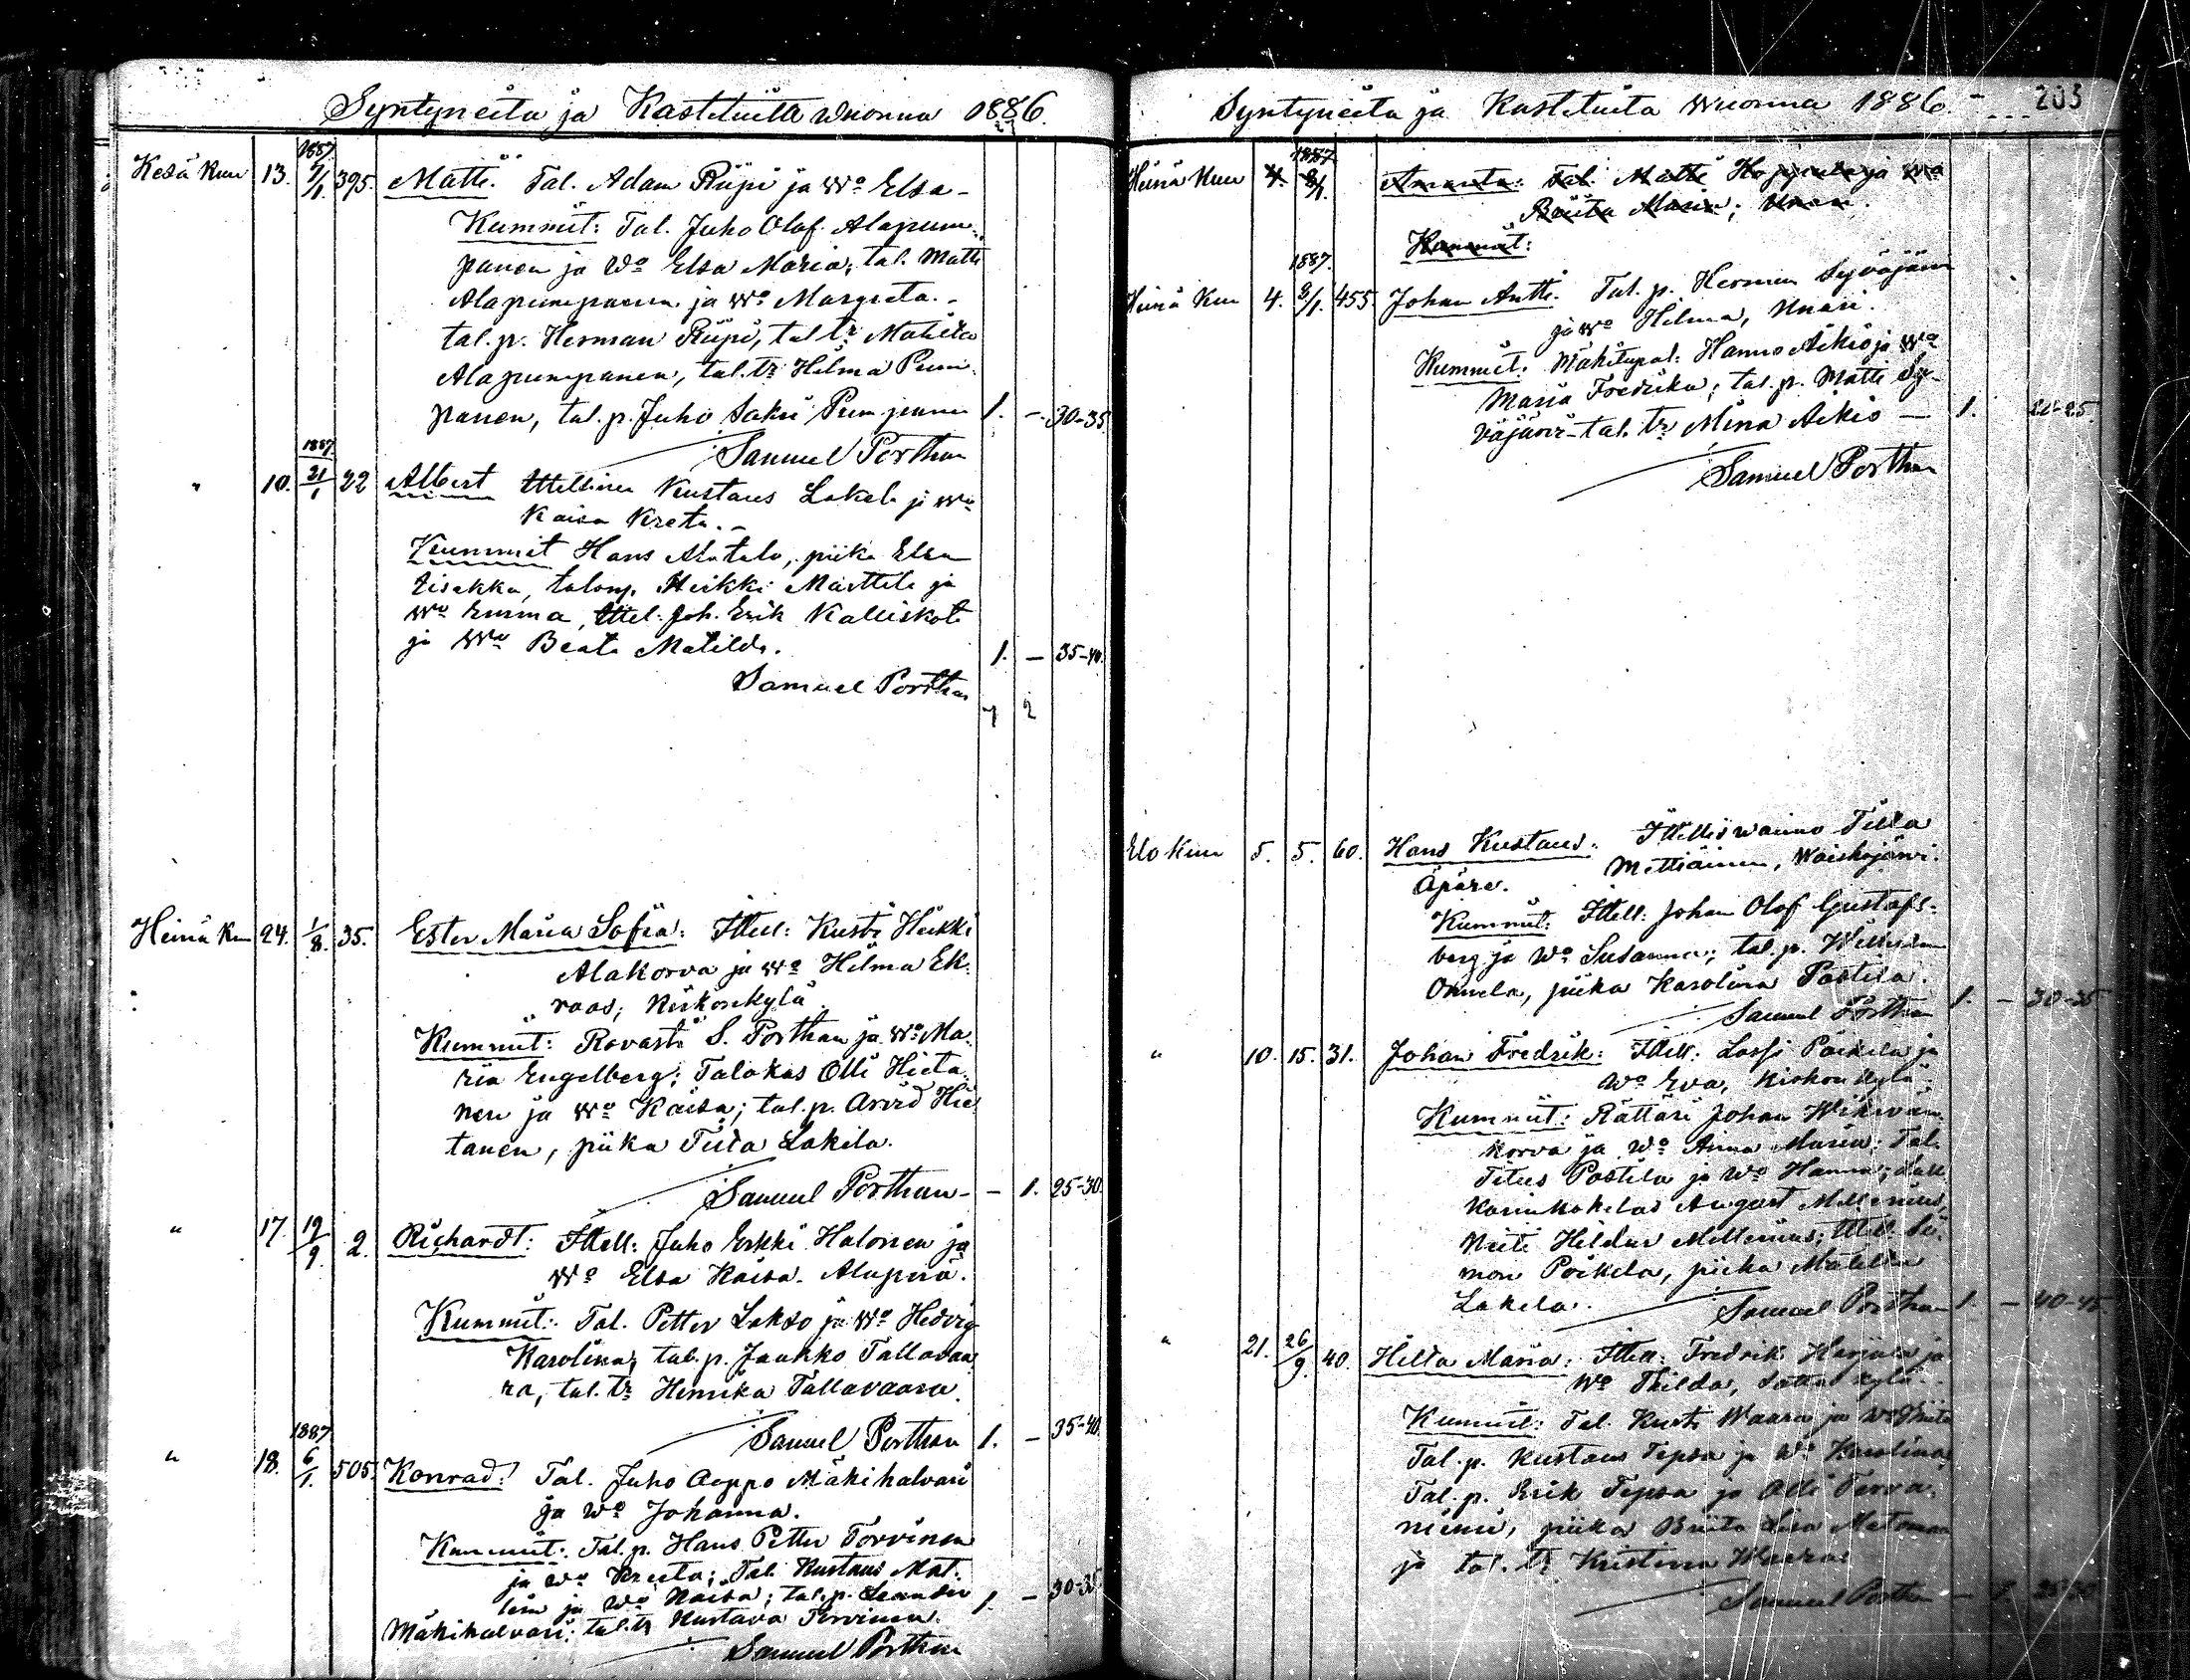 Syntyneitä ja Kastetuita Wuonna 1886.
27
Kesä Kuu 13. 1887 7/1. 395. Matti. Tal. Adam Riipi ja Wo Elsa -
Kummit: Tal. Juho Olof Alapum-
panen ja Wo Elsa Maria; tal. Matti
Alapumpanen ja Wo Margreta. -
tal. p. Herman Riipi, tal tr Matilda
Alapumpanen, tal. tr Hilma Pum-
panen, tal. p. Juho Sakri Pumpanen 1. - 30-35.
Samuel Porthan
" 10. 1887 21/1 22 Albert Ittellinen Kustaus Lakela ja Wo
Kaisa Kreta. -
Kummit Hans Alatalo, piika Elsa
Liisakka, talonp. Heikki Marttila ja
Wo Emma, Ittel. Joh. Erik Kalliskota
ja Wo Beata Matilda. 1. - 35-40.
Samuel Porthan
7 2
Heinä Ku 24. 1/8. 35. Ester Maria Sofia: Ittell: Kusti Heikki
Alakorva ja Wo Hilma Ek-
roos; Kiskonkylä.
Kummit: Rovasti S. Porthan ja Wo Ma-
ria Engelberg; Talokas Olli Hieta-
nen ja Wo Kaisa; tal. p. Arvid Hie-
tanen, piika Tiila Lakila.
Samuel Porthan - - 1. 25-30.
" 17. 19/9. 2. Richardt: Ittell: Juho Erkki Halonen ja
Wo Elsa Kaisa. Alaperä.
Kummit: Tal. Petter Lakso ja Wo Hedvig
Karolina; tal. p. Jaakko Tallavaa-
ra, tal. tr Henrika Tallavaara.
Samuel Porthan 1. - 35-40.
" 18. 1887 6/1. 505. Konrad: Tal. Juho Aeppo Mäkihalvari
ja Wo Johanna.
Kummit: Tal. p. Hans Petter Torvinen
ja Wo Kreeta; Tal. Kustaus Mat-
lein ja Wo Kaisa; tal. p. Leander 1. - 30-35.
Mäkihalvari; tal. tr Kustava Torvinen.
Samuel Porthan
Syntyneitä ja Kastetuita Wuonna 1886. - 203
Heinä Kuu 4. 1887 8/1. Amanta: Tal. Matti ja Wo
Briita Maria; Unari.
Kummit:
Heinä Kuu 4. 1887. 8/1. 455. Johan Antti. Tal. p. Herman Syväjärvi
ja Wo Hilma, Unari.
Kummit: Mäkitupal: Hannu Aikio ja Wo
Maria Fredrika; tal. p. Matti Sy-
väjärvi - tal. tr Mina Aikio - 1. 20-25.
Samuel Porthan
Elo Kuu 5. 5. 60. Hans Kustaus: Ittellis vaimo Tilda
Äpärä. Mettiäinen, Waiskojärvi.
Kummit: Ittell: Johan Olof Gustafs-
berg ja Wo Susanna; tal. p. Wilhelm
Onnela, piika Karolina Postila.
Samuel Porthan 1. - 30-35
" 10. 15. 31. Johan Fredrik: Ittell: Lassi Poikela ja
Wo Eva, Kiskonkylä.
Kummit: Rättäri Johan Wihivän-
korva ja Wo Anna Maria; Tal.
Titus Postila ja Wo Hanna;
August Mellenius,
Neiti Hildur Mellenius; Ittell. Si-
mon Poikela, piika Matilda
Lakela. Samuel Porthan 1. - 40-45
" 21. 26/9. 40. Hilta Maria: Ittell: Fredrik Harjula ja
Wo Thilda, Sattas kylä.
Kummit: Tal. Kusti Waara ja Wo
Tal. p. Kustaus Tepsa ja Wo Karolina;
Tal. p. Erik Tepsa ja Olli Terva-
niemi, piika Briita Lisa
ja tal. tr Kristina Waara
Samuel Porthan - 1. 25-30